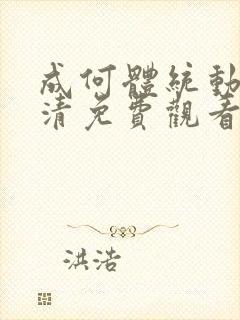 成何體統動
清免費觀看
洪浩